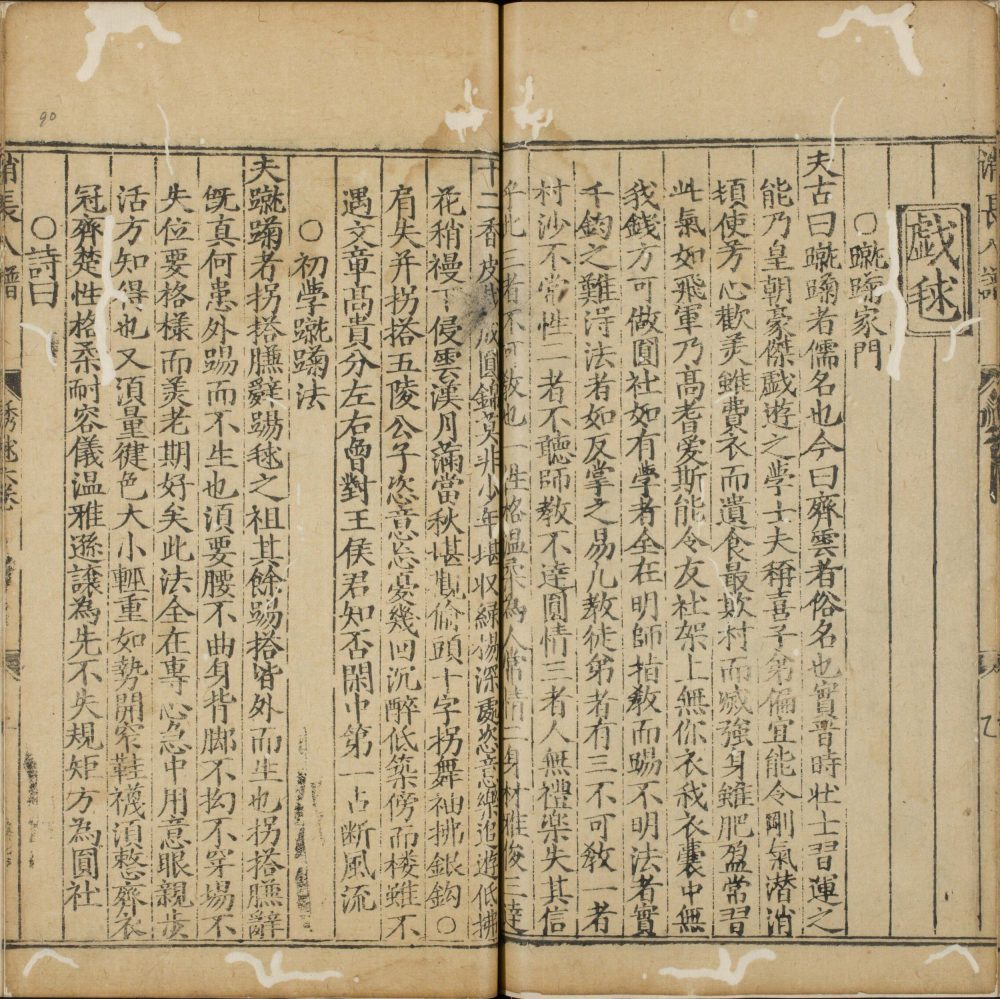 戯毬
○蹴踘家門
夫古曰蹴踘者儒名也今曰齊雲者俗名也實晋時壮士習運之
能乃皇朝豪傑戯遊之學士夫稱喜子弟偏宜能令剛氣潜消
頃使芳心歡羙雖費衣而遺食最欺村而滅強身雖肥盈常習
此氣如飛軍乃髙耆愛斯能令友社架上無你衣我衣囊中無
我錢方可做圎社如有學者全在明師指教而踢不明法者實
千鈞之難得法者如反掌之易凡教徒弟者有三不可教一者
村沙不常性二者不聽師教不達圓情三者人無禮樂失其信
此三者不可教也一性格温柔為人常情二身材雅俊三達
十二香皮 成圓錦莫非少年堪収緑楊深處恣意樂追遊低拂
花稍褪下侵雲漢月滿當秋堪觀偷頭十字拐舞袖拂銀鈎○
肩失并拐搭五陵公子恣意忘憂幾回沉醉低築傍而楼雖不
遇文章髙貴分左右曾對王侯君知否閑中第一占断風流
○初學蹴踘法
夫蹴踘者拐搭膁辭踢毬之祖其餘踢搭皆外而生也拐搭膁辭
既真何患外踢而不生也須要腰不曲身背脚不抝不穿場不
失位要格樣而羙老期好矣此法全在專心急中用意眼親歩
活方知得也又湏量健色大小輕重如勢開窄鞋襪湏整齊衣
冠齊楚性格柔耐容儀温雅遜讓為先不失規矩方為圓社
○詩曰
八譜